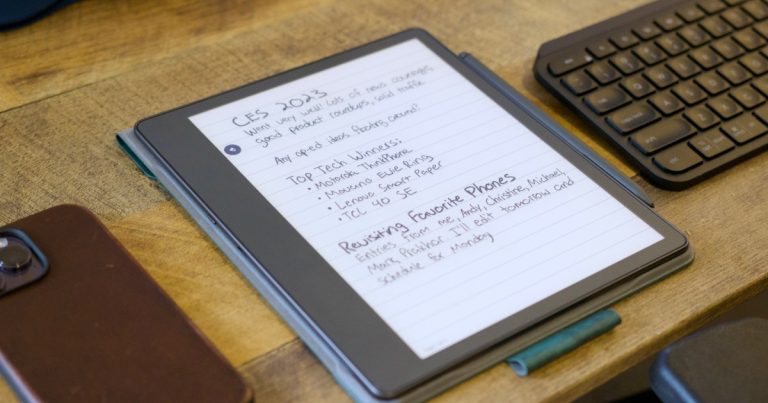 CES 2023
Went very well! Lots of news coverage,
good product roundups, solid traffic
Any op-ed ideas floating around?
Top Tech Winners:
• Motorola ThinkPhone
• Movano Evie Ring
• Lenovo Smart Paper
• TCL 40 SE
Revisiting Favorite Phones
Entries from me, Andy, Christine, Michael,
Mark, Prakhar I'll edit tomorrow and
schedule for Monday